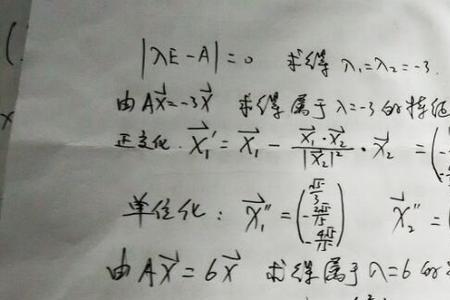 |λE-A|=0 求得 λ₁=λ₂=-3
由 AX⃗=-3X⃗ 求得属于 λ=-3 的特征
正交化. X⃗₁' = X⃗₁ - (X⃗₁·X⃗₂)/|X⃗₂|² · X⃗₂ = (
单位化: X⃗₁'' = (√5/3, -2√5/15, -4√5/15) X⃗₂'' = (
由 AX⃗=6X⃗ 求得属于 λ=6 的